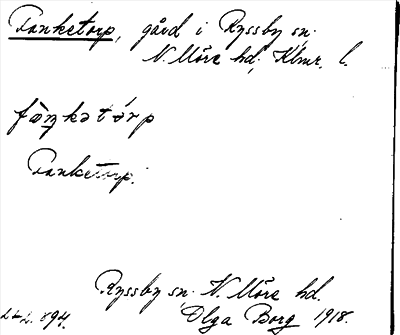 Fanketorp, gård i Ryssby sn.
N. Möre hd., Klmr. l.
fàŋkətórp
Fanketorp.
Ryssby sn. N. Möre hd.
Olga Borg 1918.